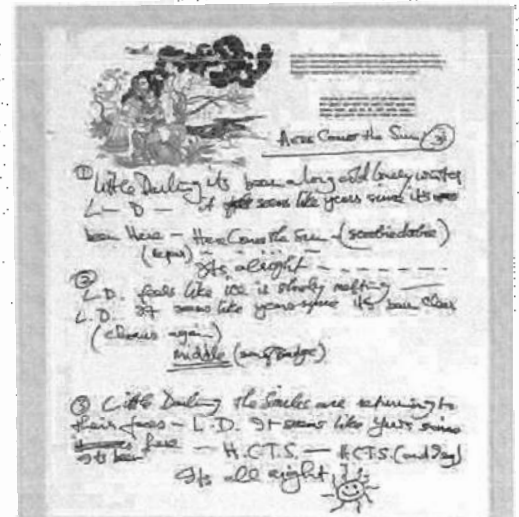 Here Comes the Sun 3
① Little Darling its been a long cold lonely winter
L – D – it seems like years since its
been Here – Here Comes the Sun – (scoobiedoobie)
(repeat)
Its alright
② L.D. feels like ice is slowly melting
L.D. It seems like years since its been clear
(chorus again)
middle (
③ Little Darling the Smiles are returning to
their faces – L.D. It seems like years since
Its been here – H.C.T.S. – H.C.T.S. (and
Its all right